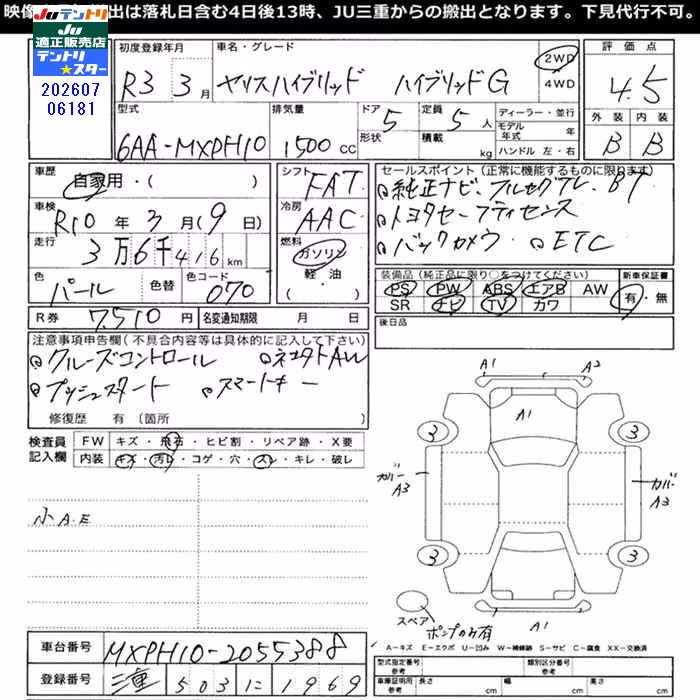 映像 出は落札日含む4日後13時、JU三重からの搬出となります。下見代行不可。
JUテントリ
JU
適正販売店
テントリ
★スター
202607
06181
初度登録年月 R3 3月
車名・グレード ヤリスハイブリッド ハイブリッドG
2WD
4WD
評価点 4.5
外装 内装
B B
型式 6AA-MXPH10
排気量 1500 cc
ドア 5
形状
定員 5 人
積載 kg
ディーラー・並行
モデル年式 年
ハンドル 左・右
車歴 自家用・( )
車検 R10 年 3 月 (9 日)
走行 3万6千416 km
色 パール 色替 色コード 070
シフト FAT
冷房 AAC
燃料 ガソリン
軽・油
・( )
セールスポイント(正常に機能するものに限ります)
純正ナビ、フルセグTV、BT
トヨタセーフティセンス
バックカメラ ETC
装備品(純正品に限り○をつけてください)
PS PW ABS エアB AW
SR ナビ TV カワ
新車保証書
有・無
後日品
R券 7,510 円 名変通知期限 月 日
注意事項申告欄(不具合内容等は具体的に記入して下さい)
クルーズコントロール
プッシュスタート スマートキー
修復歴 有(箇所 )
検査員記入欄
FW キズ・飛石・ヒビ割・リペア跡・X要
内装 キズ・汚レ・コゲ・穴・スレ・キレ・破レ
小A.E
A1 A2
A1
3 3
カバーA3 カバーA3
3 3
スペア
ポンプのみ有
A1
A-キズ E-エクボ U-凹み W-補修跡 S-サビ C-腐食 XX-交換済
車台番号 MXPH10-2055388
登録番号 三重 503 に 1969
型式指定番号 参考
類別区分番号 参考
車庫証明用 参考 長さ cm 幅 cm 高さ cm